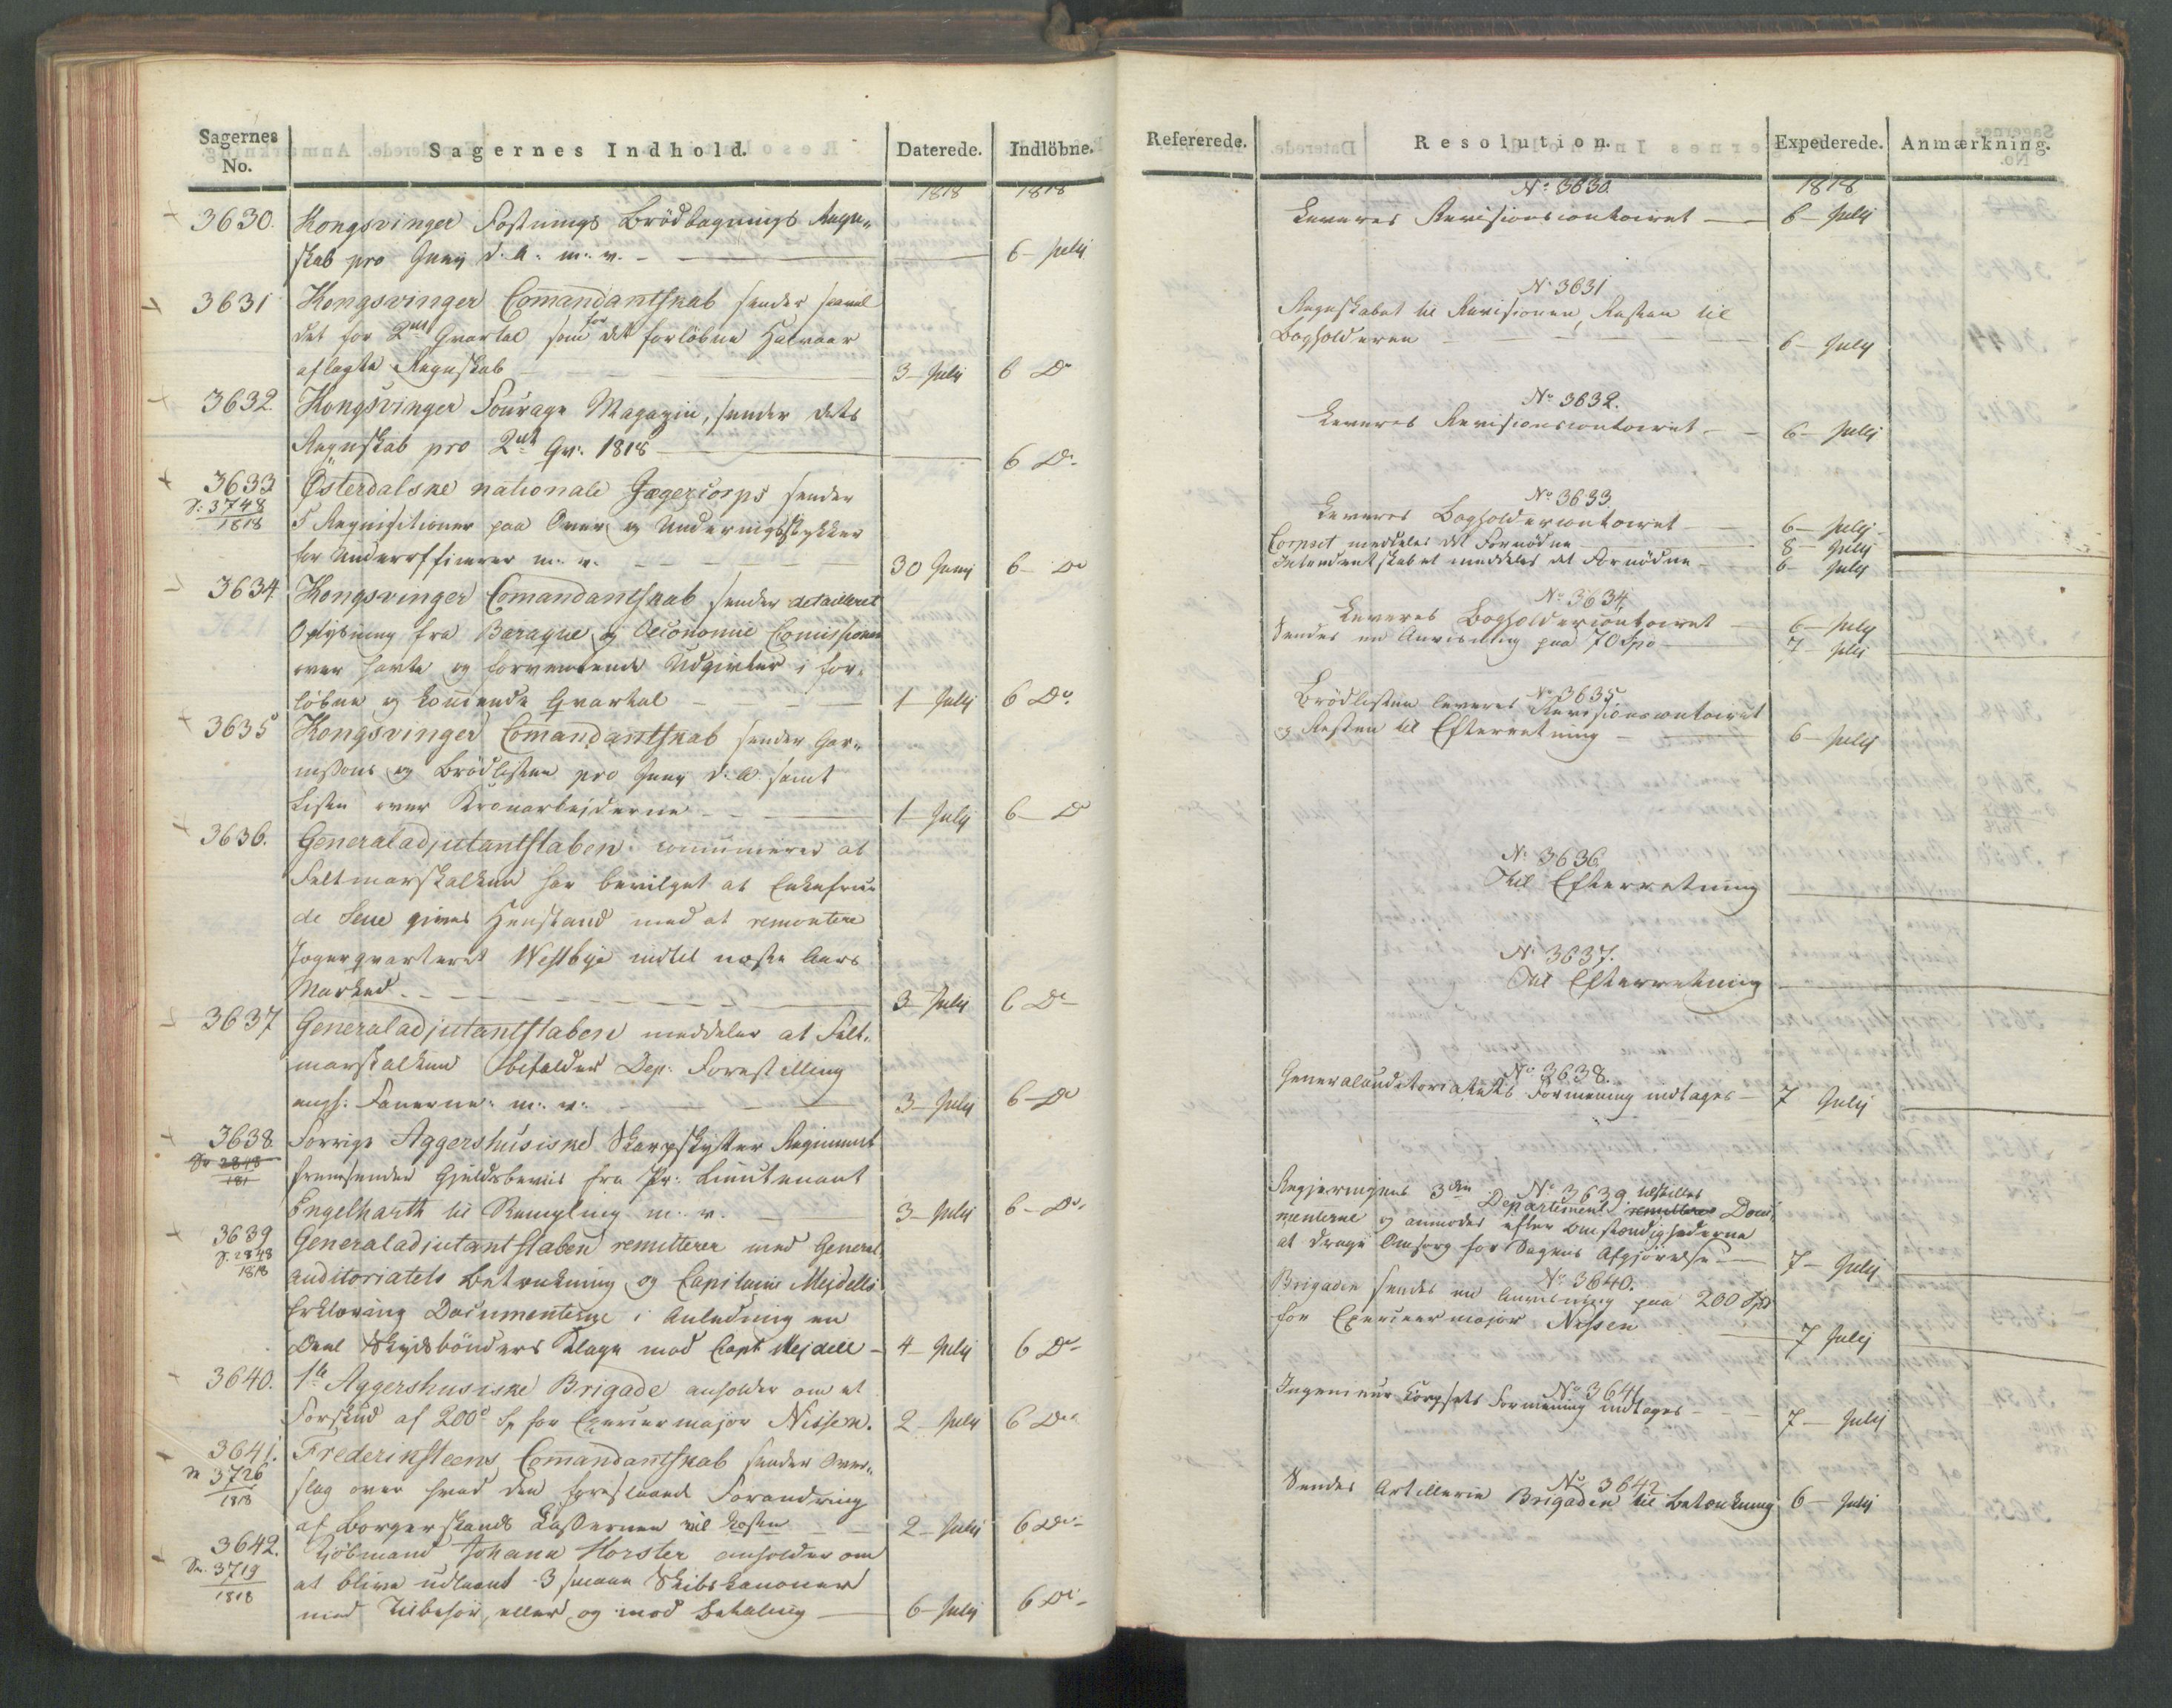 Sagernes No.
Sagernes Indhold.
Daterede.
Indlöbne.
1818
1818
3630. Kongsvinger Festnings Brödbagnings Regn-
skab pro Juny d. A. m. v. 6 July
3631 Kongsvinger Comandantskab sender saavel
det for 2det Qvartal som for det forløbne Halvaar
aflagte Regnskab 3 July 6 Do
3632. Kongsvinger Fourage Magazin, sender dets
Regnskab pro 2det Qv. 1818 6 Do
3633 Østerdalske nationale Jægercorps sender
S: 3748
1818
5 Requisitioner paa Over og Underrigsstykker
for Underofficerer m. v. 30 Juny 6 Do
3634 Kongsvinger Comandantskab sender detailleret
Oplysning fra Baraque og Oeconomie Comissionen
over havte og forventende Udgivter i for-
løbne og komende Qvartal 1 July 6 Do
3635 Kongsvinger Comandantskab sender Gar-
nisons og Brödlisten pro Juny d. A. samt
Listen over Kronarbejderne 1 July 6 Do
3636. Generaladjutantstaben comunicerer at
Feltmarskalken har bevilget at Enkefrue
de Seue gives Henstand med at remontere
Jægerqvarteret Westbye indtil næste Aars
Marked 3 July 6 Do
3637 Generaladjutantstaben meddeler at Felt-
marskalken bifalder Dep. Forestilling
angf. Fanerne m. v. 3 July 6 Do
3638. Forrige Aggershusiske Skarpskytter Regiment
Sr 2848
181
fremsender Gjeldsbeviis fra Pr. Lieutenant
Engelhardt til Rempling m. v. 3 July 6 Do
3639 Generaladjutantstaben remitterer med General
S. 2848
1818
auditoriatets Betænkning og Capitaine Mejdells
Erklæring Documenterne i Anledning en
Deel Skydsbönders Klage mod Capt Mejdell 4 July 6 Do
3640. 1te Aggershusiske Brigade anholder om et
Forskud af 200 Sp for Exerceermajor Nissen. 2 July 6 Do
3641. Frederiksteens Comandantskab sender Over-
Sr 3726
1818
slag over hvad den foreslaaede Forandring
af Borgerskands Cassernen vil koste 2 July 6 Do
3642. Kjöbmand Johann Horster anholder om
Sr. 3719
1818
at blive udlaant 3 smaae Skibskanoner
med Tilbehør, eller og mod Betaling 6 July 6 Do
Refererede.
Resolution.
Expederede.
Anmærkning.
No 3630. 1818
Leveres Revisionscontoiret 6 July
No 3631
Regnskabet til Revisionen, Resten til
Bogholderen 6 July
No 3632.
Leveres Revisionscontoiret 6 July
No 3633.
Leveres Bogholdercontoiret 6 July
Corpset meddeles det Fornødne 8 July
Intendentskabet meddeles det Fornødne 6 July
No 3634.
Leveres Bogholdercontoiret 6 July
Sendes en Anvisning paa 70 Spd 7 July
No 3635
Brödlisten leveres Revisionscontoiret
og Resten til Efterretning 6 July
No 3636.
Til Efterretning
No 3637.
Til Efterretning
No 3638.
Generalauditoriatets Formening indtages 7 July
No 3639.
Regjeringens 3die Departement tilstilles remitteres Docu-
menterne og anmodes efter Omstændighederne
at drage Omsorg for Sagens Afgjørelse 7 July
No 3640.
Brigaden sendes en Anvisning paa 200 Spd
for Exerceermajor Nissen 7 July
No 3641
Ingenieur Corpsets Formening indtages 7 July
No 3642
Sendes Artillerie Brigaden til Betænkning 6 July